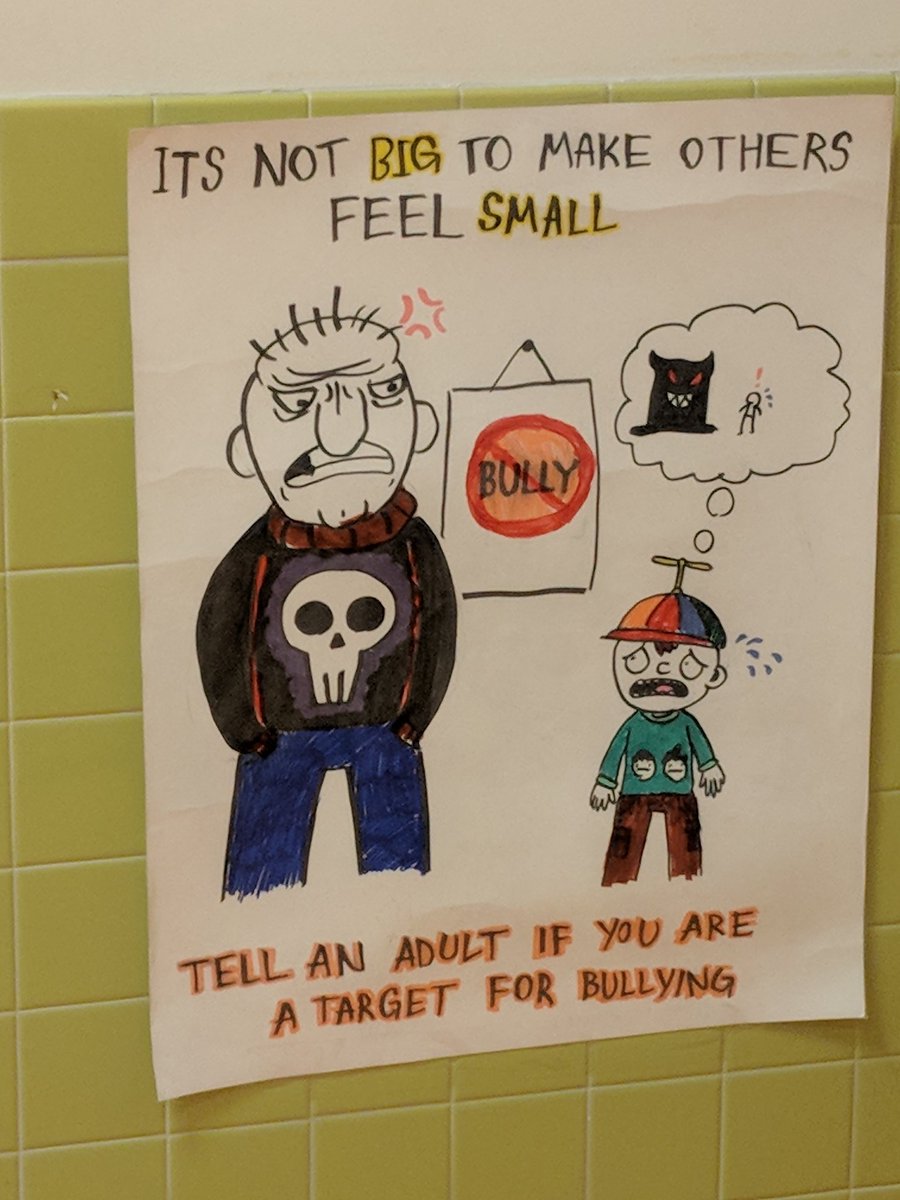 ITS NOT BIG TO MAKE OTHERS
FEEL SMALL
BULLY
TELL AN ADULT IF YOU ARE
A TARGET FOR BULLYING